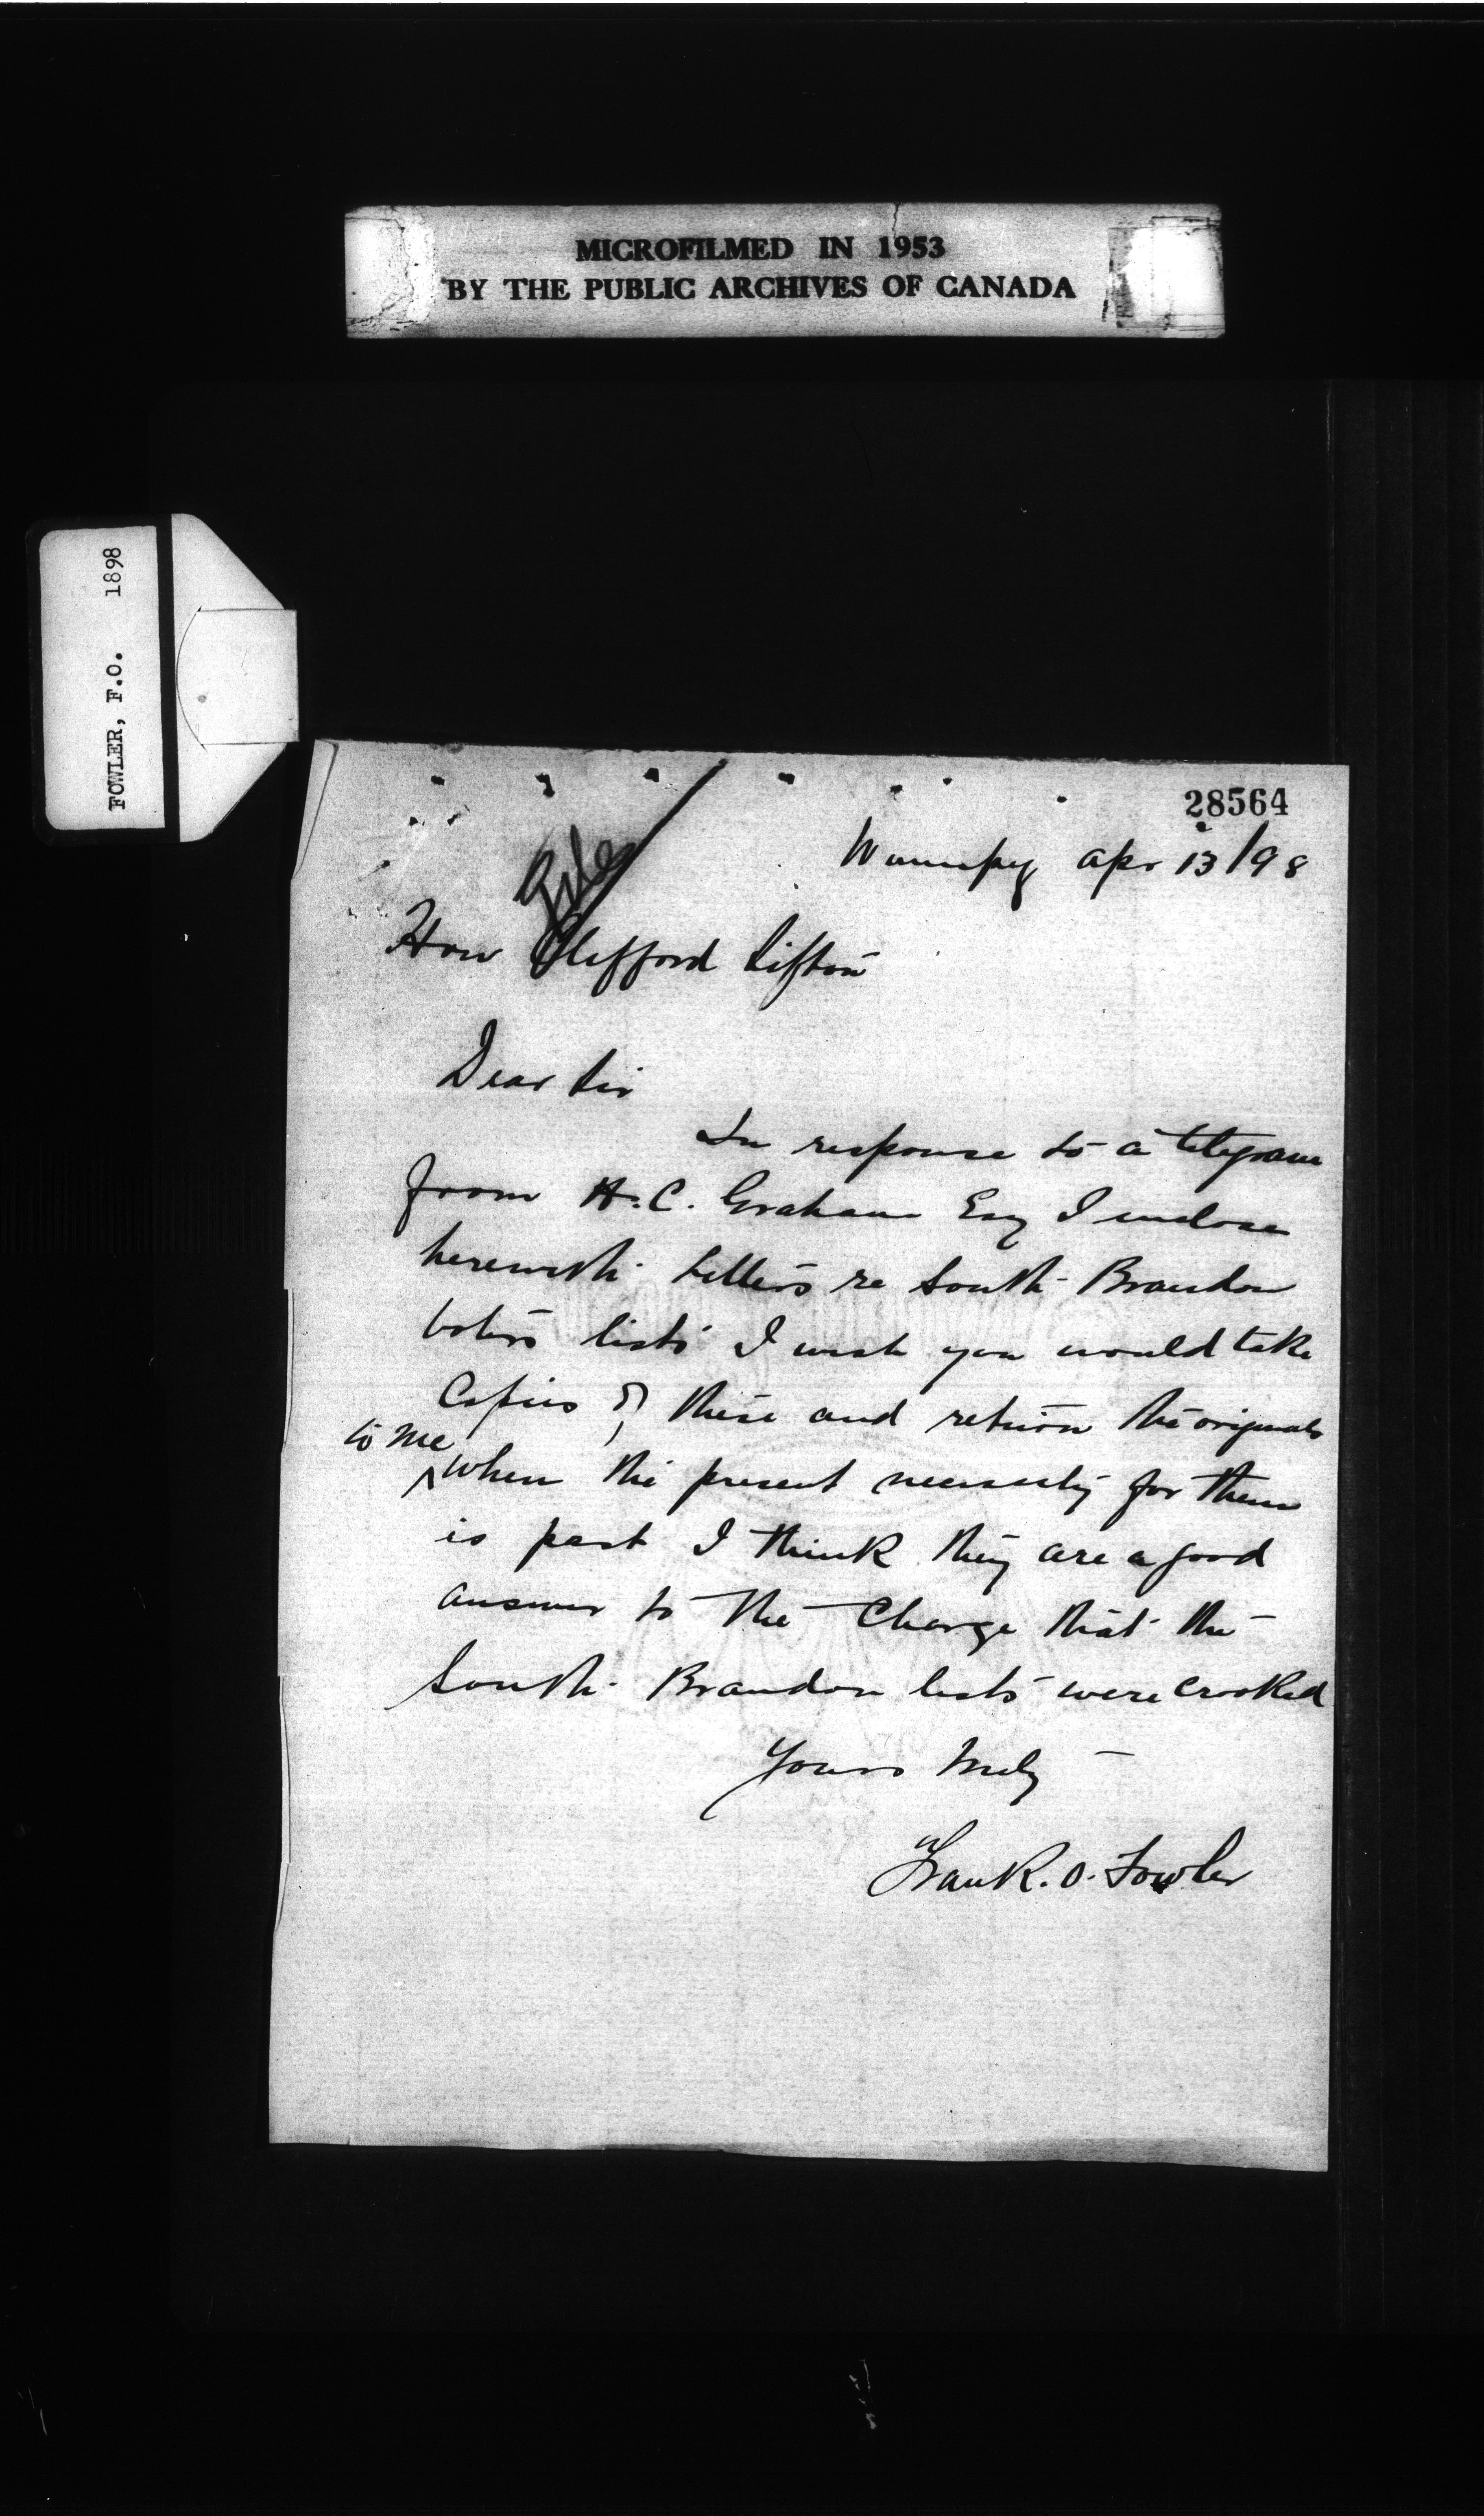 MICROFILMED IN 1953
BY THE PUBLIC ARCHIVES OF CANADA
FOWLER, F.O. 1898
28564
File
Winnipeg Apr 13/98
Hon Clifford Sifton
Dear Sir
In response to a telegram
from H.C. Graham Esq I enclose
herewith letters re South Brandon
voters lists I wish you would take
Copies of these and return the originals
to me
when the present necessity for them
is past I think they are a good
answer to the Charge that the
South Brandon lists were crooked
Yours truly
Frank. O. Fowler